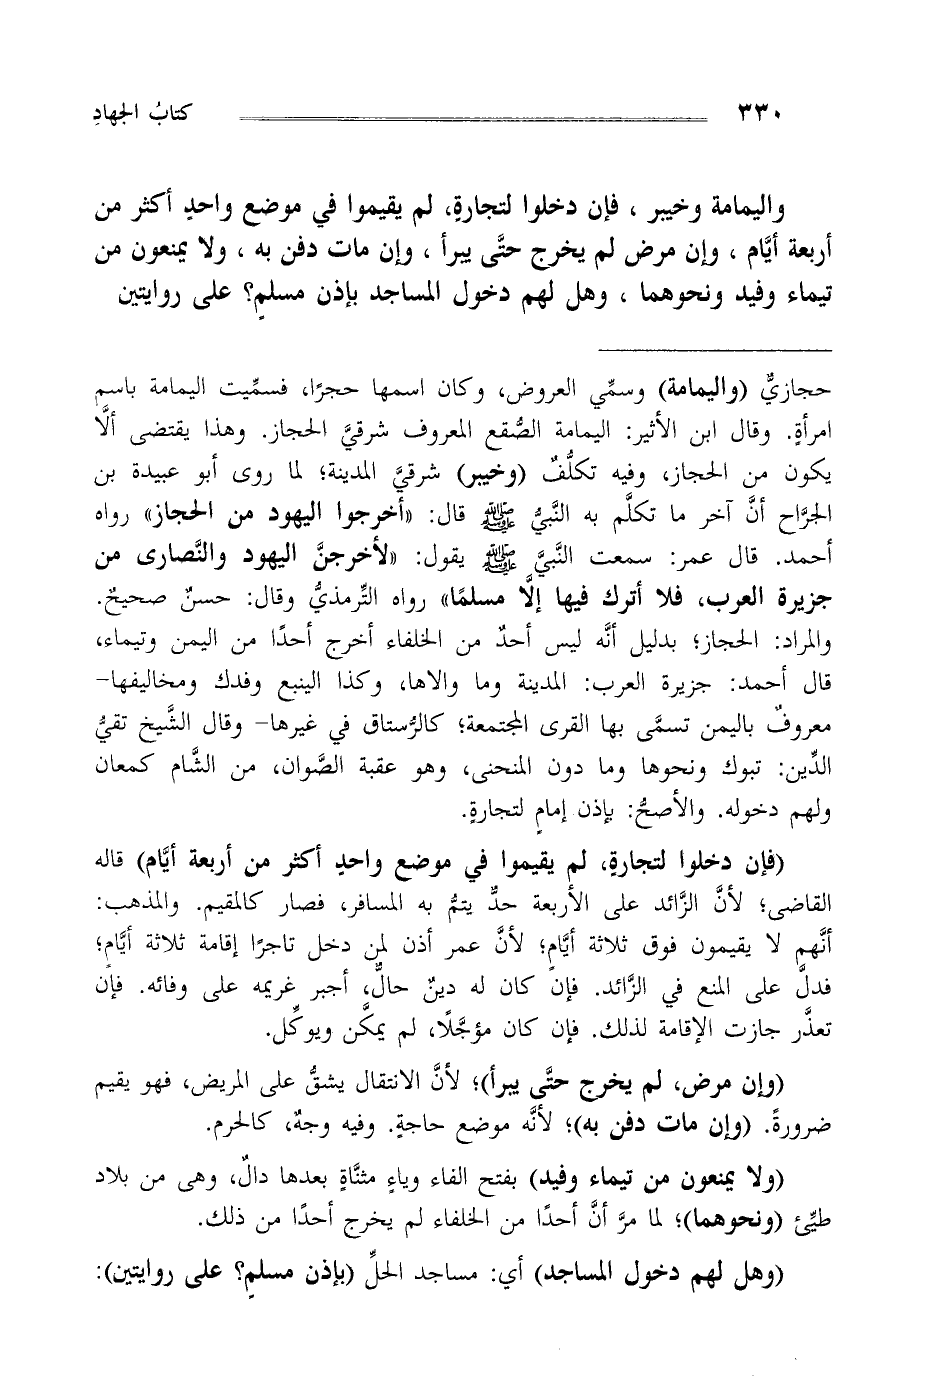 ٣٣٠ كتابُ الجهادِ
واليمامة وخيبر ، فإن دخلوا لتجارةٍ، لم يقيموا في موضع واحدٍ أكثر من
أربعة أيَّام ، وإن مرض لم يخرج حتَّى يبرأ ، وإن مات دفن به ، ولا يمنعون من
تيماء وفيد ونحوهما ، وهل لهم دخول المساجد بإذن مسلمٍ؟ على روايتين
حجازيٌّ (واليمامة) وسمِّي العروض، وكان اسمها حجرًا، فسمِّيت اليمامة باسم
امرأةٍ. وقال ابن الأثير: اليمامة الصُّقع المعروف شرقيَّ الحجاز. وهذا يقتضى ألَّا
يكون من الحجاز، وفيه تكلُّفٌ (وخيبر) شرقيَّ المدينة؛ لما روى أبو عبيدة بن
الجرَّاح أنَّ آخر ما تكلَّم به النَّبيُّ ﷺ قال: «أخرجوا اليهود من الحجاز» رواه
أحمد. قال عمر: سمعت النَّبيَّ ﷺ يقول: «لأخرجنَّ اليهود والنَّصارى من
جزيرة العرب، فلا أترك فيها إلَّا مسلمًا» رواه التِّرمذيُّ وقال: حسنٌ صحيحٌ.
والمراد: الحجاز؛ بدليل أنَّه ليس أحدٌ من الخلفاء أخرج أحدًا من اليمن وتيماء،
قال أحمد: جزيرة العرب: المدينة وما والاها، وكذا الينبع وفدك ومخاليفها-
معروفٌ باليمن تسمَّى بها القرى المجتمعة؛ كالرُّستاق في غيرها- وقال الشَّيخ تقيُّ
الدِّين: تبوك ونحوها وما دون المنحنى، وهو عقبة الصَّوان، من الشَّام كمعان
ولهم دخوله. والأصحُّ: بإذن إمامٍ لتجارةٍ.
(فإن دخلوا لتجارةٍ، لم يقيموا في موضع واحدٍ أكثر من أربعة أيَّام) قاله
القاضى؛ لأنَّ الزَّائد على الأربعة حدٌّ يتمُّ به المسافر، فصار كالمقيم. والمذهب:
أنَّهم لا يقيمون فوق ثلاثة أيَّامٍ؛ لأنَّ عمر أذن لمن دخل تاجرًا إقامة ثلاثة أيَّامٍ؛
فدلَّ على المنع في الزَّائد. فإن كان له دينٌ حالٌّ، أجبر غريمه على وفائه. فإن
تعذَّر جازت الإقامة لذلك. فإن كان مؤجَّلًا، لم يمكَّن ويوكِّل.
(وإن مرض، لم يخرج حتَّى يبرأ)؛ لأنَّ الانتقال يشقُّ على المريض، فهو يقيم
ضرورةً. (وإن مات دفن به)؛ لأنَّه موضع حاجةٍ. وفيه وجهٌ، كالحرم.
(ولا يمنعون من تيماء وفيد) بفتح الفاء وياءٍ مثنَّاةٍ بعدها دالٌ، وهى من بلاد
طيِّئ (ونحوهما)؛ لما مرَّ أنَّ أحدًا من الخلفاء لم يخرج أحدًا من ذلك.
(وهل لهم دخول المساجد) أي: مساجد الحلِّ (بإذن مسلمٍ؟ على روايتين):